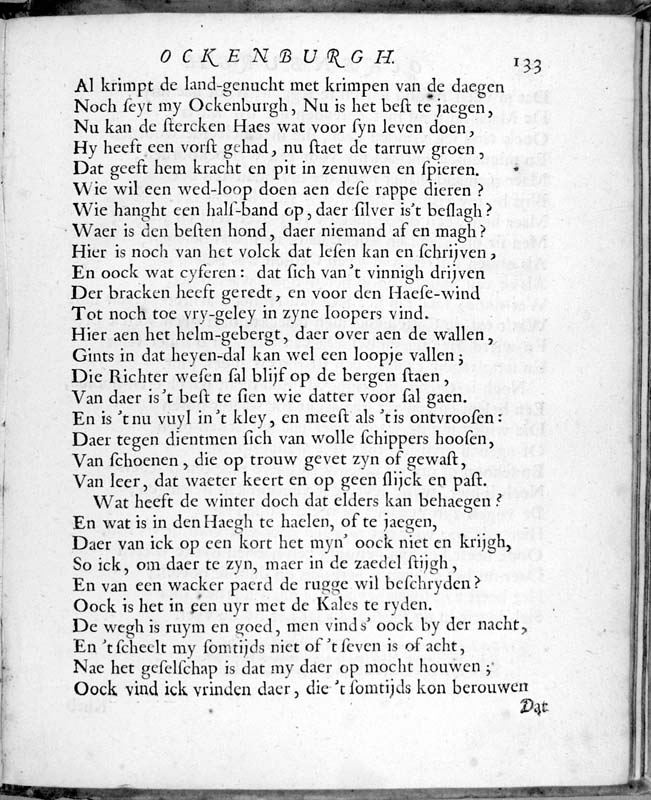 OCKENBURGH.
133
Al krimpt de land-genucht met krimpen van de daegen
Noch ſeyt my Ockenburgh, Nu is het beſt te jaegen,
Nu kan de ſtercken Haes wat voor ſyn leven doen,
Hy heeft een vorſt gehad, nu ſtaet de tarruw groen,
Dat geeft hem kracht en pit in zenuwen en ſpieren.
Wie wil een wed-loop doen aen deſe rappe dieren?
Wie hanght een halſ-band op, daer ſilver is't beſlagh?
Waer is den beſten hond, daer niemand af en magh?
Hier is noch van het volck dat leſen kan en ſchrijven,
En oock wat cyferen: dat ſich van't vinnigh drijven
Der bracken heeft geredt, en voor den Haeſe-wind
Tot noch toe vry-geley in zyne loopers vind.
Hier aen het helm-gebergt, daer over aen de wallen,
Gints in dat heyen-dal kan wel een loopje vallen;
Die Richter weſen ſal blijf op de bergen ſtaen,
Van daer is't beſt te ſien wie datter voor ſal gaen.
En is 't nu vuyl in't kley, en meeſt als 'tis ontvrooſen:
Daer tegen dientmen ſich van wolle ſchippers hooſen,
Van ſchoenen, die op trouw gevet zyn of gewaſt,
Van leer, dat waeter keert en op geen ſlijck en paſt.
Wat heeft de winter doch dat elders kan behaegen?
En wat is in den Haegh te haelen, of te jaegen,
Daer van ick op een kort het myn' oock niet en krijgh,
So ick, om daer te zyn, maer in de zaedel ſtijgh,
En van een wacker paerd de rugge wil beſchryden?
Oock is het in een uyr met de Kales te ryden.
De wegh is ruym en goed, men vind s' oock by der nacht,
En 't ſcheelt my ſomtijds niet of 't ſeven is of acht,
Nae het geſelſchap is dat my daer op mocht houwen;
Oock vind ick vrinden daer, die 't ſomtijds kon berouwen
Dat